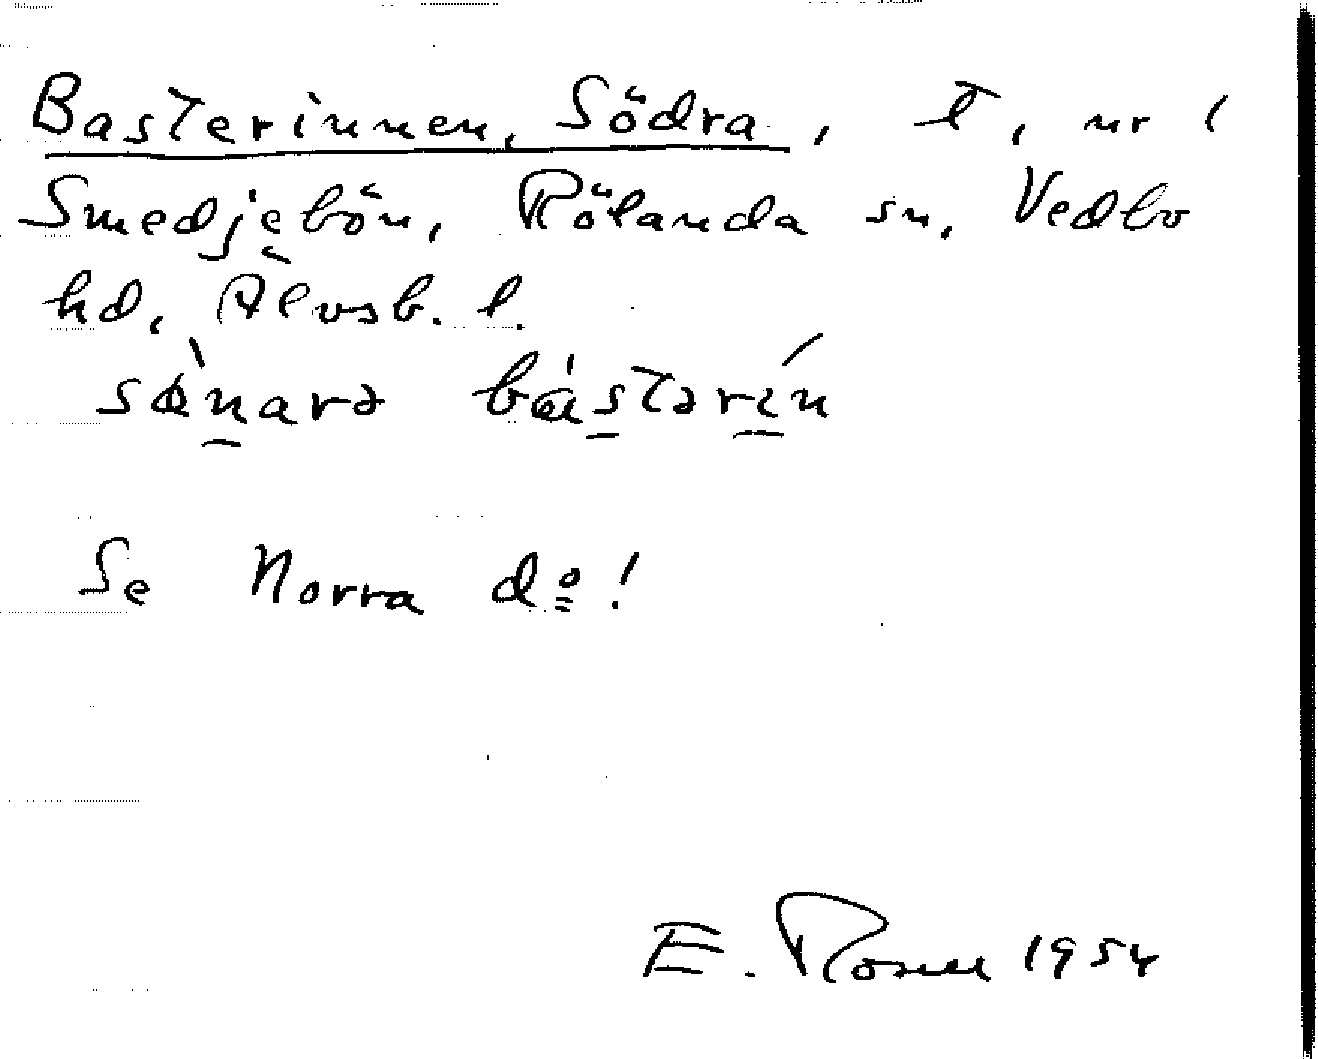 Basterinnen, Södra, t, nr 1
Smedjebön, Rölanda sn, Vedbo
hd, Älvsb. l.
sànarə bástərín
Se Norra d:o!
E. Rosell 1954